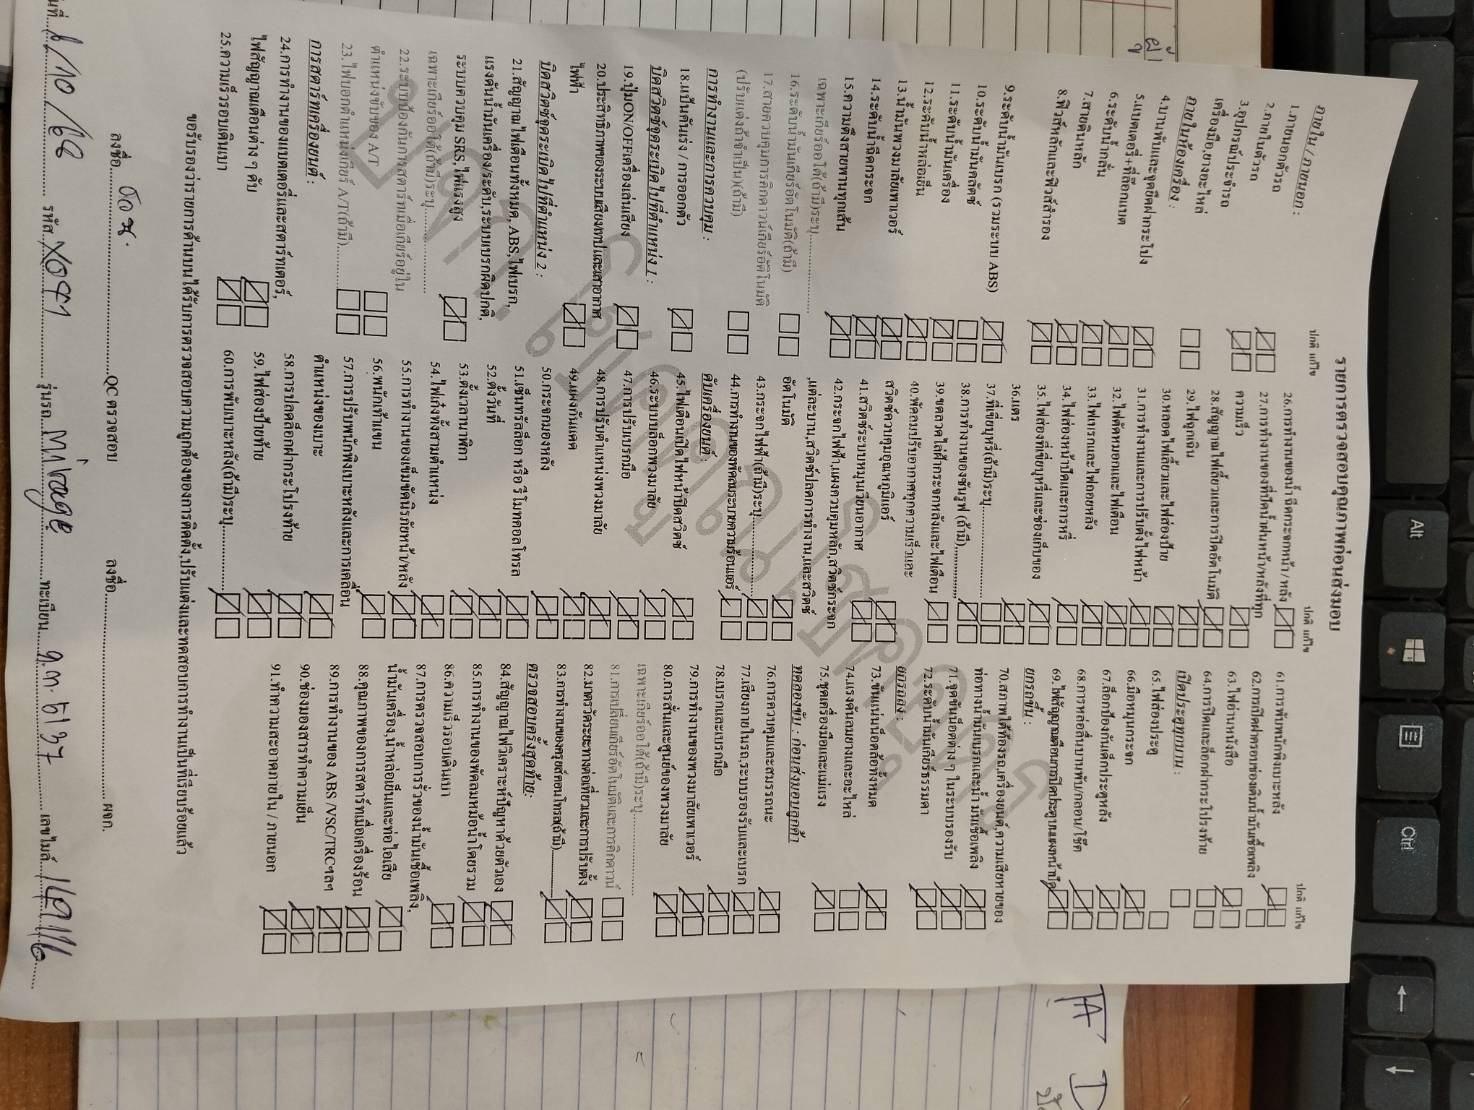 รายการตรวจสอบคุณภาพก่อนส่งมอบ
ปกติ แก้ไข
ภายใน / ภายนอก :
1.ภายนอกตัวรถ
2.ภายในตัวรถ
3.อุปกรณ์ประจำรถ
เครื่องมือ,ยางอะไหล่
ภายในห้องเครื่อง :
4.บานพับและจุดยึดฝากระโปง
5.แบตเตอรี่+ที่ล็อกแบต
6.ระดับน้ำกลั่น
7.สายดินหลัก
8.ฟิวส์หลักและฟิวส์สำรอง
9.ระดับน้ำมันเบรก (รวมระบบ ABS)
10.ระดับน้ำมันคลัตช์
11.ระดับน้ำมันเครื่อง
12.ระดับน้ำหล่อเย็น
13.น้ำมันพวงมาลัยเพาเวอร์
14.ระดับน้ำฉีดกระจก
15.ความตึงสายพานทุกเส้น
เฉพาะเกียร์ออโต้(ถ้ามี)ระบุ
16.ระดับน้ำมันเกียร์อัตโนมัติ(ถ้ามี)
17.สายควบคุมการคิกดาวน์เกียร์อัตโนมัติ
(ปรับแต่งถ้าจำเป็น)(ถ้ามี)
การทำงานและการควบคุม :
18.แป้นคันเร่ง / การออกตัว
บิดสวิตช์จุดระเบิดไปที่ตำแหน่ง 1 :
19.ปุ่มON/OFFเครื่องเล่นเสียง
20.ประสิทธิภาพของระบบเสียงเทปและเสาอากาศ
ไฟฟ้า
บิดสวิตช์จุดระเบิดไปที่ตำแหน่ง 2 :
21.สัญญาณไฟเตือนทั้งหมด, ABS,ไฟเบรก,
แรงดันน้ำมันเครื่อง/ระดับ,ระบบเบรกผิดปกติ,
ระบบควบคุม SRS, ไฟแรงสูง
เฉพาะเกียร์ออโต้(ถ้ามี)ระบุ
22.ระบบป้องกันการสตาร์ทเมื่อเกียร์อยู่ใน
ตำแหน่งขับของ A/T
23.ไฟบอกตำแหน่งเกียร์ A/T(ถ้ามี)
การสตาร์ทเครื่องยนต์ :
24.การทำงานของแบตเตอรี่และสตาร์ทเตอร์,
ไฟสัญญาณเตือนต่าง ๆ ดับ
25.ความเร็วรอบเดินเบา
ปกติ แก้ไข
26.การทำงานของน้ำฉีดกระจกหน้า/ หลัง
27.การทำงานของที่ปัดน้ำฝนหน้า/หลังที่ทุก
ความเร็ว
28.สัญญาณไฟเลี้ยวและการปิดอัตโนมัติ
29.ไฟฉุกเฉิน
30.หลอดไฟเลี้ยวและไฟส่องป้าย
31.การทำงานและการปรับตั้งไฟหน้า
32.ไฟตัดหมอกและไฟเตือน
33.ไฟเบรกและไฟถอยหลัง
34.ไฟส่องหน้าปัดและการหรี่
35.ไฟส่องที่เขี่ยบุหรี่และช่องเก็บของ
36.แตร
37.ที่เขี่ยบุหรี่(ถ้ามี)ระบุ
38.การทำงานของซันรูฟ (ถ้ามี)
39.ขดลวดไล่ฝ้ากระจกหลังและไฟเตือน
40.พัดลมปรับอากาศทุกความเร็วและ
สวิตช์ควบคุมอุณหภูมิแอร์
41.สวิตช์ระบบหมุนเวียนอากาศ
42.กระจกไฟฟ้า,แผงควบคุมหลัก,สวิตช์กระจก
,แต่ละบาน,สวิตช์ปลดการทำงาน,และสวิตช์
อัตโนมัติ
43.กระจกไฟฟ้า(ถ้ามี)ระบุ
44.การทำงานของพัดลมระบายความร้อนแอร์
ดับเครื่องยนต์ :
45.ไฟเตือนเปิดไฟหน้าปิดสวิตช์
46.ระบบล็อกพวงมาลัย
47.การปรับเบรกมือ
48.การปรับตำแหน่งพวงมาลัย
49.แผงกันแดด
50.กระจกมองหลัง
51.เซ็นทรัลล็อก หรือ รีโมทคอลโทรล
52.ตั้งวันที่
53.ตั้งเวลานาฬิกา
54.ไฟเก๋งทั้งสามตำแหน่ง
55.การทำงานของเข็มขัดนิรภัยหน้า/หลัง
56.พนักเท้าแขน
57.การปรับพนักพิงเบาะหลังและการเคลื่อน
ตำแหน่งของเบาะ
58.การปลดล็อกฝากระโปรงท้าย
59.ไฟส่องป้ายท้าย
60.การพับเบาะหลัง(ถ้ามี)ระบุ
ปกติ แก้ไข
61.การพับพนักพิงเบาะหลัง
62.การเปิดฝาครอบช่องเติมน้ำมันเชื้อเพลิง
63.ไฟอ่านหนังสือ
64.การปิดและล็อกฝากระโปรงท้าย
เปิดประตูทุกบาน :
65.ไฟส่องประตู
66.มือหมุนกระจก
67.ล็อกป้องกันเด็กประตูหลัง
68.การหล่อลื่นบานพับ/กลอน/โช๊ค
69.ไฟสัญญาณเตือนการปิดประตูบนแผงหน้าปัด
ยกรถขึ้น :
70.สภาพใต้ท้องรถ,เครื่องยนต์,ความเสียหายของ
ท่อทางน้ำมันเบรกและน้ำมันเชื้อเพลิง
71.จุดขันน็อตต่าง ๆ ในระบบรองรับ
72.ระดับน้ำมันเกียร์ธรรมดา
ยกรถลง :
73.ขันแน่นน็อตล้อทั้งหมด
74.แรงดันลมยางและอะไหล่
75.ชุดเครื่องมือและแม่แรง
ทดลองขับ : ก่อนส่งมอบลูกค้า
76.การควบคุมและสมรรถนะ
77.เสียงภายในรถ,ระบบรองรับและเบรก
78.เบรกและเบรกมือ
79.การทำงานของพวงมาลัยเพาเวอร์
80.การสั่นและศูนย์ของพวงมาลัย
เฉพาะเกียร์ออโต้(ถ้ามี)ระบุ
81.การเปลี่ยนเกียร์อัตโนมัติและการคิกดาวน์
82.มาตรวัดระยะทางต่อเที่ยวและการปรับตั้ง
83.การทำงานของครูยส์คอนโทรล(ถ้ามี)
ตรวจสอบครั้งสุดท้าย:
84.สัญญาณไฟวิเคราะห์ปัญหาด้วยตัวเอง
85.การทำงานของพัดลมหม้อน้ำโดยรวม
86.ความเร็วรอบเดินเบา
87.การตรวจสอบการรั่วของน้ำมันเชื้อเพลิง,
น้ำมันเครื่อง,น้ำหล่อเย็นและท่อไอเสีย
88.คุณภาพของการสตาร์ทเมื่อเครื่องร้อน
89.การทำงานของ ABS /VSC/TRCฯลฯ
90.ช่องมองสารทำความเย็น
91.ทำความสะอาดภายใน / ภายนอก
ขอรับรองว่ารายการด้านบนได้รับการตรวจสอบความถูกต้องของการติดตั้ง,ปรับแต่งและทดสอบการทำงานเป็นที่เรียบร้อยแล้ว
ลงชื่อ QC ตรวจสอบ ลงชื่อ ผจก.
รหัส X041 รุ่นรถ Mirage ทะเบียน เลขไมล์